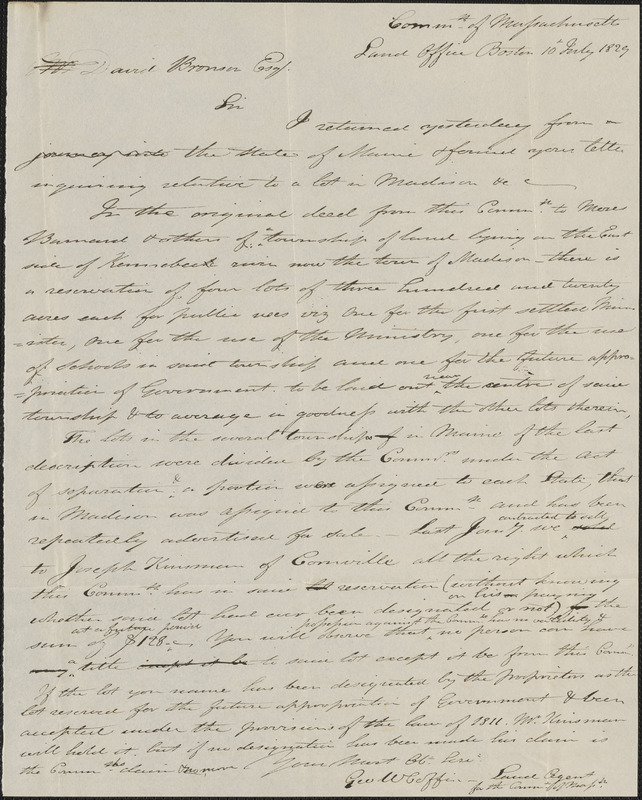 Commth of Massachusetts
Land Office Boston 10th July 1829
David Bronson Esqr.
Sir
I returned yesterday from a
journey into the State of Maine & found your letter
inquiring relative to a lot in Madison &c
In the original deed from this Commth to Moses
Barnard & others of a township of land lying on the East
side of Kennebeck river now the town of Madison there is
a reservation of four lots of three hundred and twenty
acres each for public uses viz one for the first settled Min-
=ister, one for the use of the Ministry, one for the use
of Schools in said township and one for the future appro-
=priation of Government. to be laid out near the centre of said
township & to average in goodness with the other lots therein.
The lots in the several townships in Maine of the last
description were divided by the Commrs under the act
of separation & a portion were assigned to each State, that
in Madison was assigned to this Commth and has been
repeatedly advertised for sale – last Jany we contracted to sell
to Joseph Kinsman of Cornville all the right which
this Commth has in said reservation (without knowing
whether said lot had ever been designated or not) on his paying the
sum of $128 at a future period. You will observe that no person can have
possession against the Commth has no validity &
a title to said lot except it be from this Commth
If the lot you name has been designated by the Proprietors as the
lot reserved for the future appropriation of Government & been
accepted under the provisions of the law of 1811. Mr. Kinsman
will hold it, but if no designation has been made his claim is
the Commths claim & no more
Your Most Ob. Servt
Geo W Coffin – Land Agent
for the Commth of Massts